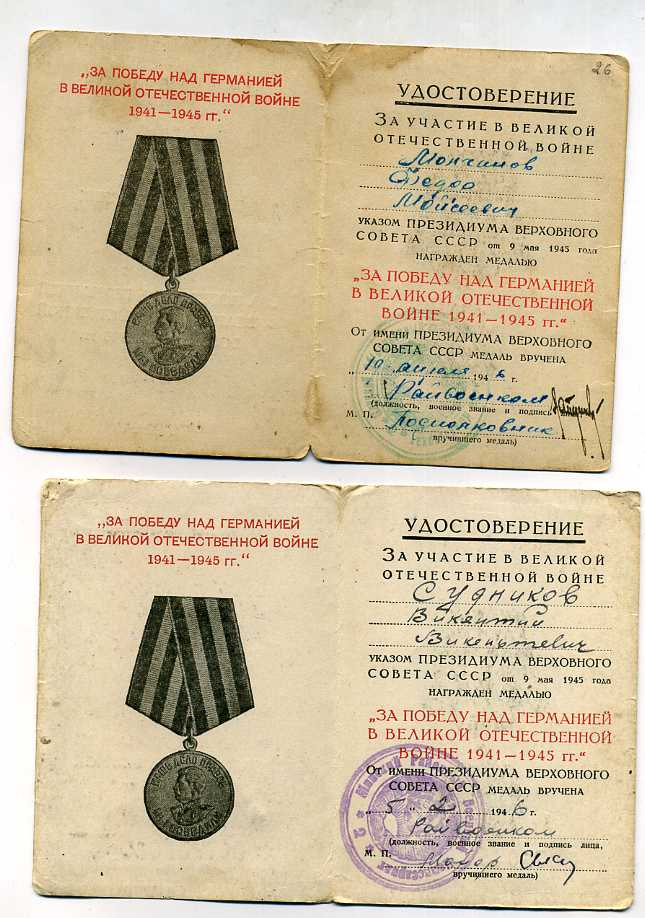 „ЗА ПОБЕДУ НАД ГЕРМАНИЕЙ
В ВЕЛИКОЙ ОТЕЧЕСТВЕННОЙ ВОЙНЕ
1941—1945 гг."
НАШЕ ДЕЛО ПРАВОЕ
МЫ ПОБЕДИЛИ
26
УДОСТОВЕРЕНИЕ
ЗА УЧАСТИЕ В ВЕЛИКОЙ
ОТЕЧЕСТВЕННОЙ ВОЙНЕ
Молчанов
Федор
Мойсеевич
УКАЗОМ ПРЕЗИДИУМА ВЕРХОВНОГО
СОВЕТА СССР от 9 мая 1945 года
НАГРАЖДЕН МЕДАЛЬЮ
„ЗА ПОБЕДУ НАД ГЕРМАНИЕЙ
В ВЕЛИКОЙ ОТЕЧЕСТВЕННОЙ
ВОЙНЕ 1941—1945 гг."
От имени ПРЕЗИДИУМА ВЕРХОВНОГО
СОВЕТА СССР МЕДАЛЬ ВРУЧЕНА
„10 апреля 1946 г.
Райвоенком
(должность, военное звание и подпись
М. П. Подполковник
вручившего медаль)
„ЗА ПОБЕДУ НАД ГЕРМАНИЕЙ
В ВЕЛИКОЙ ОТЕЧЕСТВЕННОЙ ВОЙНЕ
1941—1945 гг."
НАШЕ ДЕЛО ПРАВОЕ
МЫ ПОБЕДИЛИ
УДОСТОВЕРЕНИЕ
ЗА УЧАСТИЕ В ВЕЛИКОЙ
ОТЕЧЕСТВЕННОЙ ВОЙНЕ
Судников
Викентий
Викентьевич
УКАЗОМ ПРЕЗИДИУМА ВЕРХОВНОГО
СОВЕТА СССР от 9 мая 1945 года
НАГРАЖДЕН МЕДАЛЬЮ
„ЗА ПОБЕДУ НАД ГЕРМАНИЕЙ
В ВЕЛИКОЙ ОТЕЧЕСТВЕННОЙ
ВОЙНЕ 1941—1945 гг."
От имени ПРЕЗИДИУМА ВЕРХОВНОГО
СОВЕТА СССР МЕДАЛЬ ВРУЧЕНА
„5" 2 1946 г.
Райвоенком
(должность, военное звание и подпись лица,
М. П. Майор
вручившего медаль)